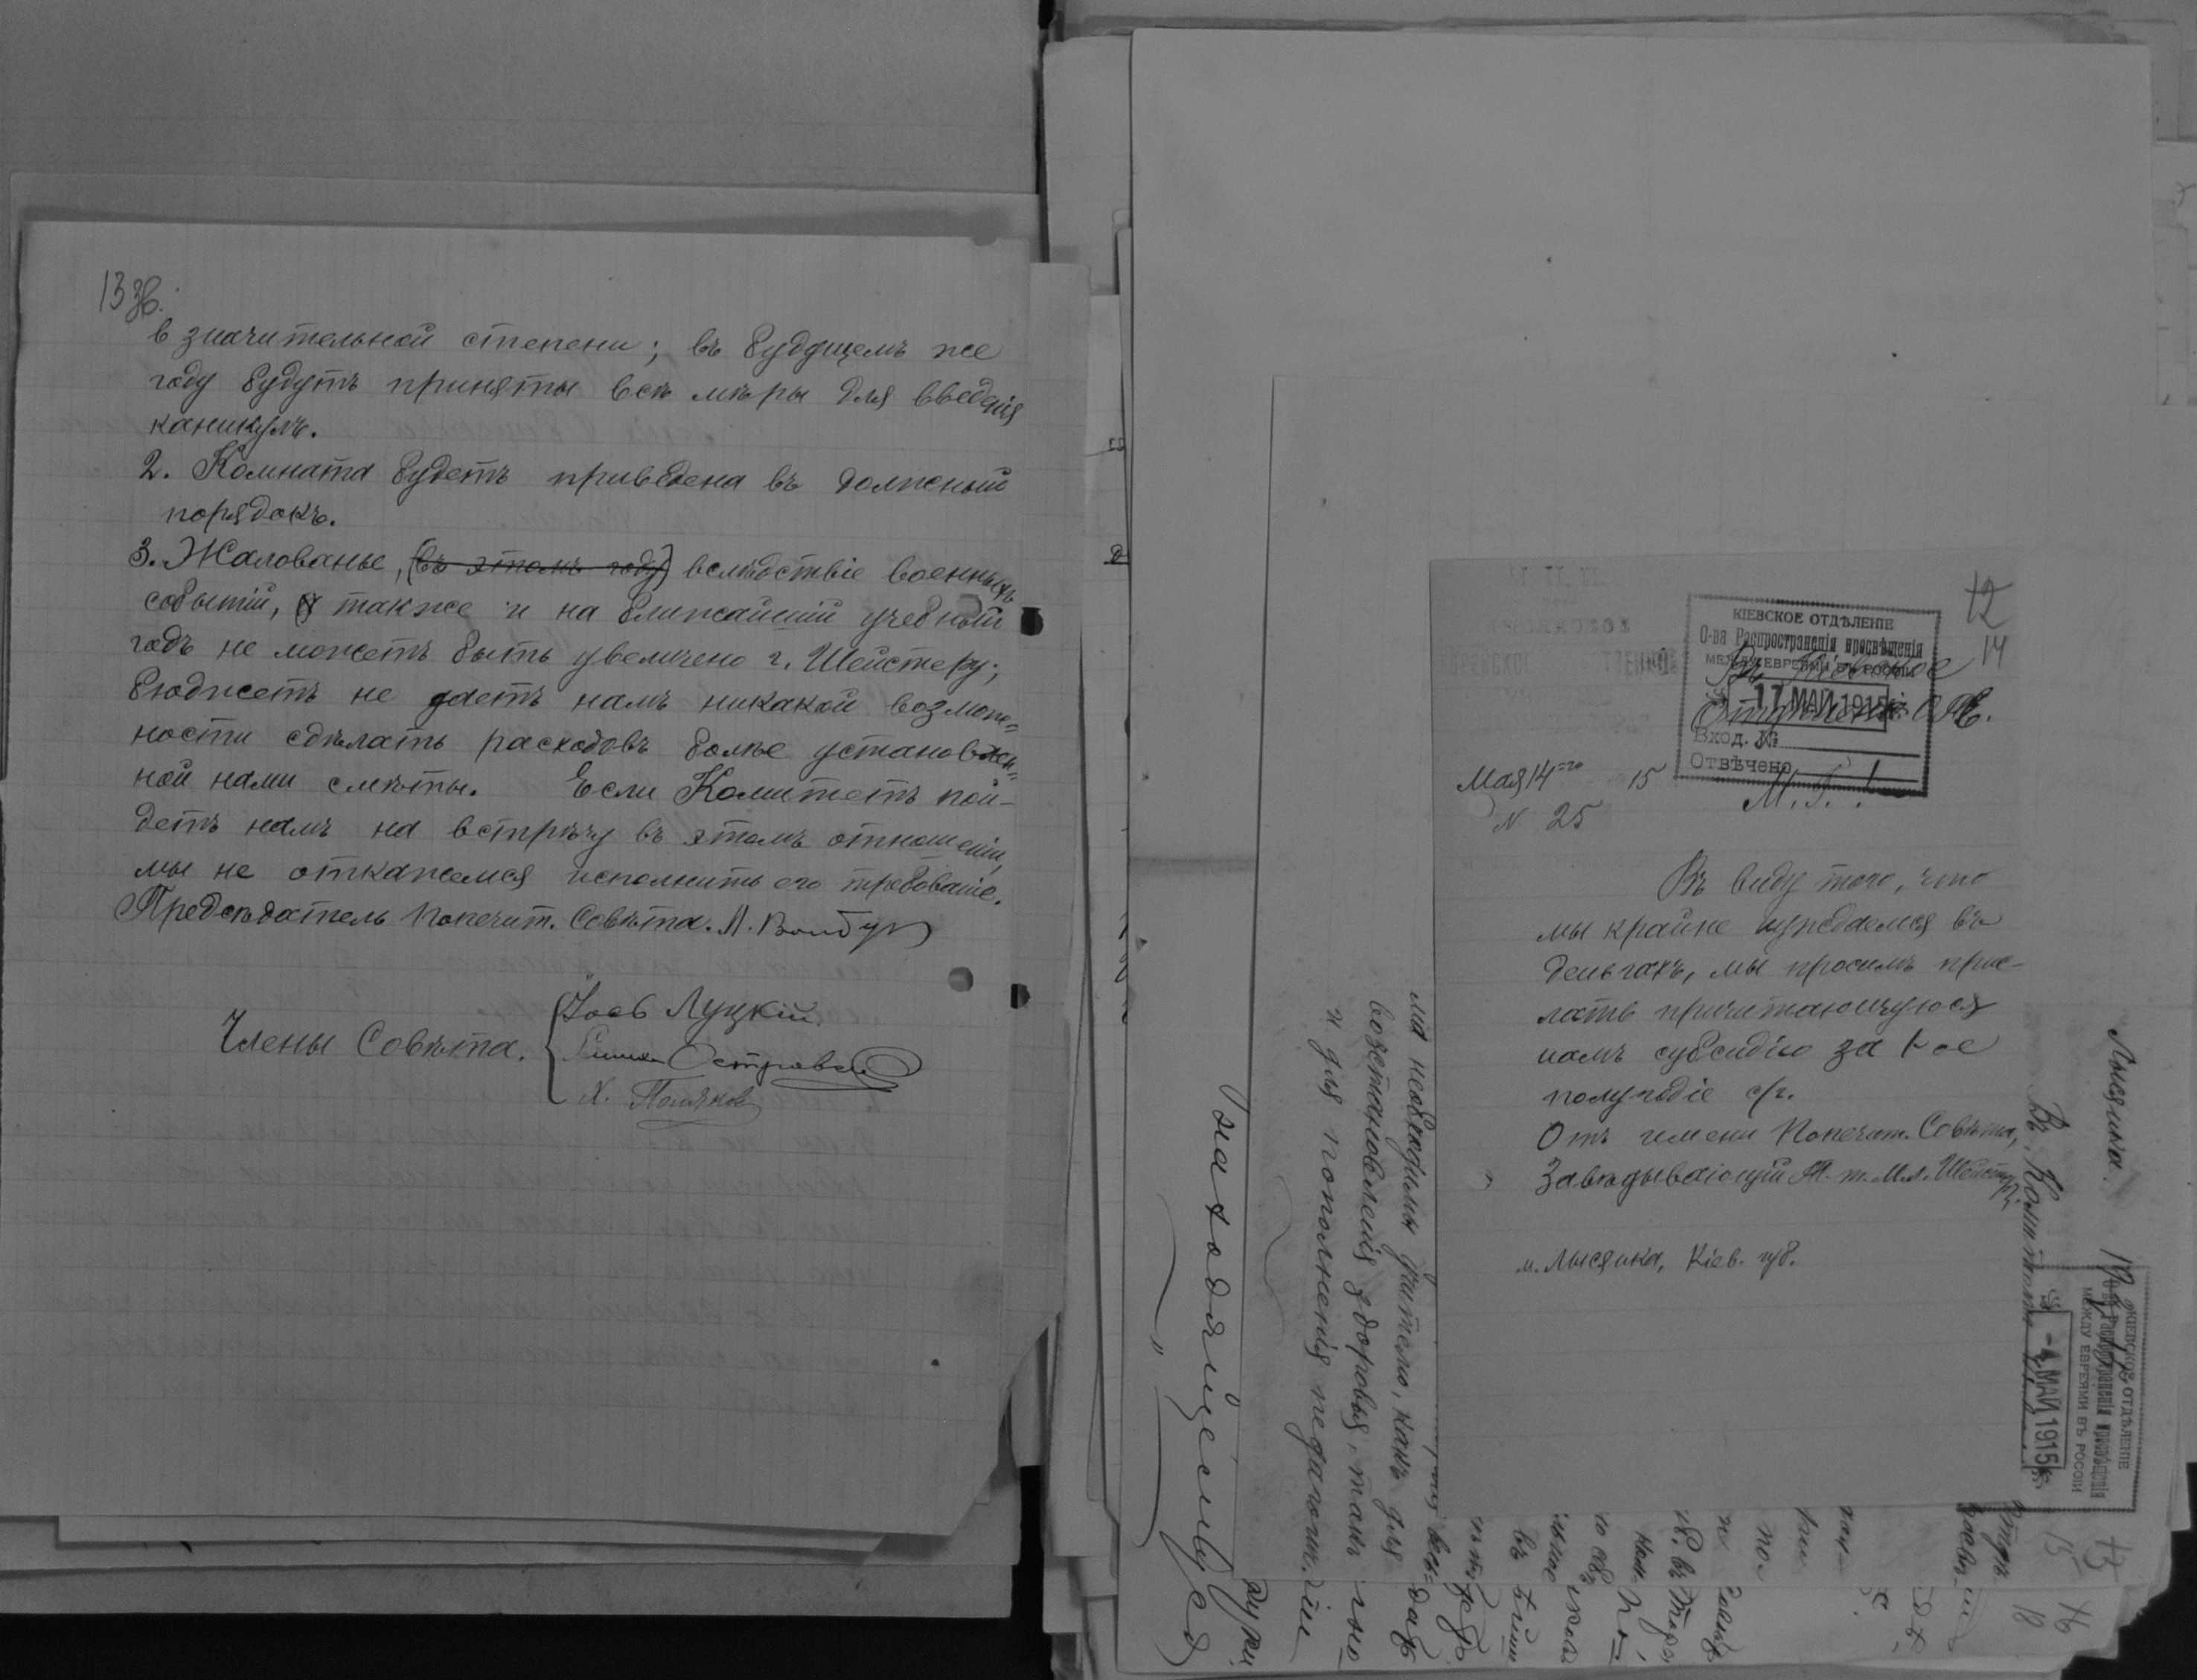 13 зв.
в значительной степени; въ будущемъ же
году будутъ приняты всѣ мѣры для введенія
каникулъ.
2. Комната будетъ приведена въ должный
порядокъ.
3. Жалованье, (въ этомъ году) вслѣдствіе военныхъ
событій, а также и на ближайшій учебный
годъ не можетъ быть увеличено г. Шейстеру;
бюджетъ не даетъ намъ никакой возмож=
ности сдѣлать расходовъ болѣе установлен=
ной нами смѣты. Если Комитетъ пой-
детъ намъ на встрѣчу въ этомъ отношеніи,
мы не откажемся исполнить его требованіе.
Предсѣдатель Попечит. Совѣта.
Члены Совѣта.
Іоевъ Луцкій.
Островскій
Х. Поляков
12
14
КІЕВСКОЕ ОТДѢЛЕНІЕ
О-ва Распространенія просвѣщенія
МЕЖДУ ЕВРЕЯМИ ВЪ РОССІИ
Въ Кіевское
17 МАЙ 1915
Отдѣленіе ОПЕ.
Вход. №
Отвѣчено
Мая 14го 15
N 25
М. Г.!
Въ виду того, что
мы крайне нуждаемся въ
деньгахъ, мы просимъ прис-
лать причитающуюся
намъ субсидію за 1-ое
полугодіе с/г.
Отъ имени Попечит. Совѣта,
Завѣдывающій Т. т. М.л. Шейстеръ.
м. Лысянка, Кіев. губ.
Лысянка.
Въ Комитетъ
КІЕВСКОЕ ОТДѢЛЕНІЕ
О-ва Распространенія просвѣщенія
МЕЖДУ ЕВРЕЯМИ ВЪ РОССІИ
-4 МАЙ 1915
ма необходимы учителю, какъ для
возстановленія здоровья, такъ
и для пополненія педагогич.
находящемуся
13
15
16
18